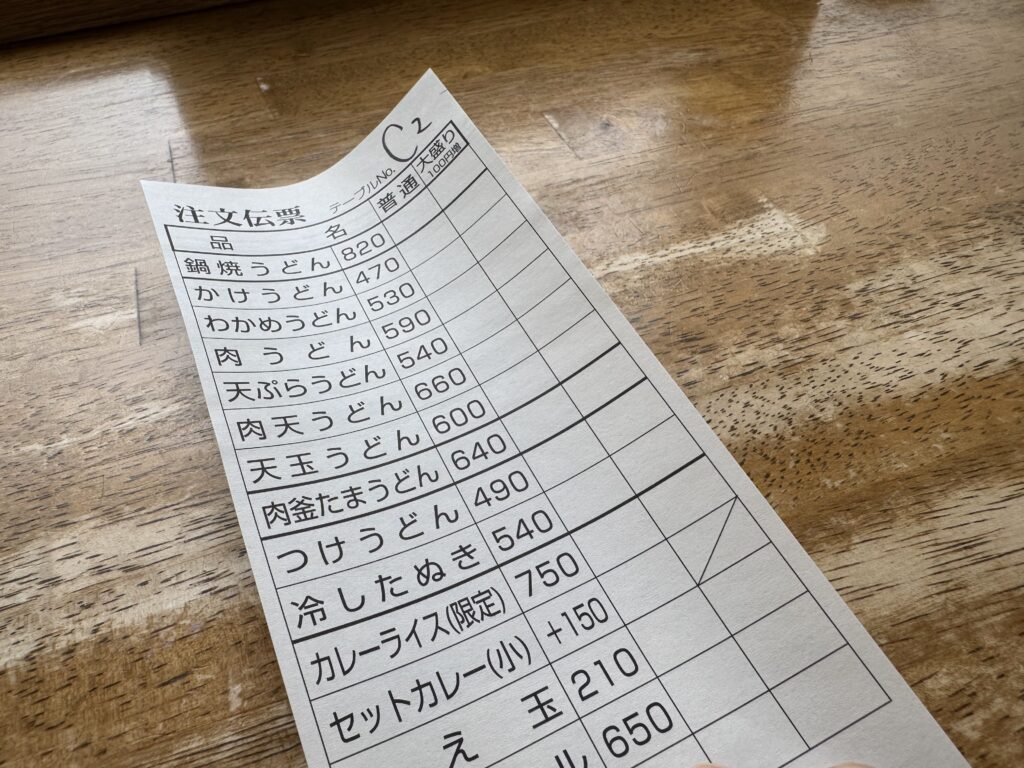 注文伝票 テーブルNo. C2
品名 普通 大盛り 100円増
鍋焼うどん 820
かけうどん 470
わかめうどん 530
肉うどん 590
天ぷらうどん 540
肉天うどん 660
天玉うどん 600
肉釜たまうどん 640
つけうどん 490
冷したぬき 540
カレーライス(限定) 750
セットカレー(小) +150
え玉 210
ル 650